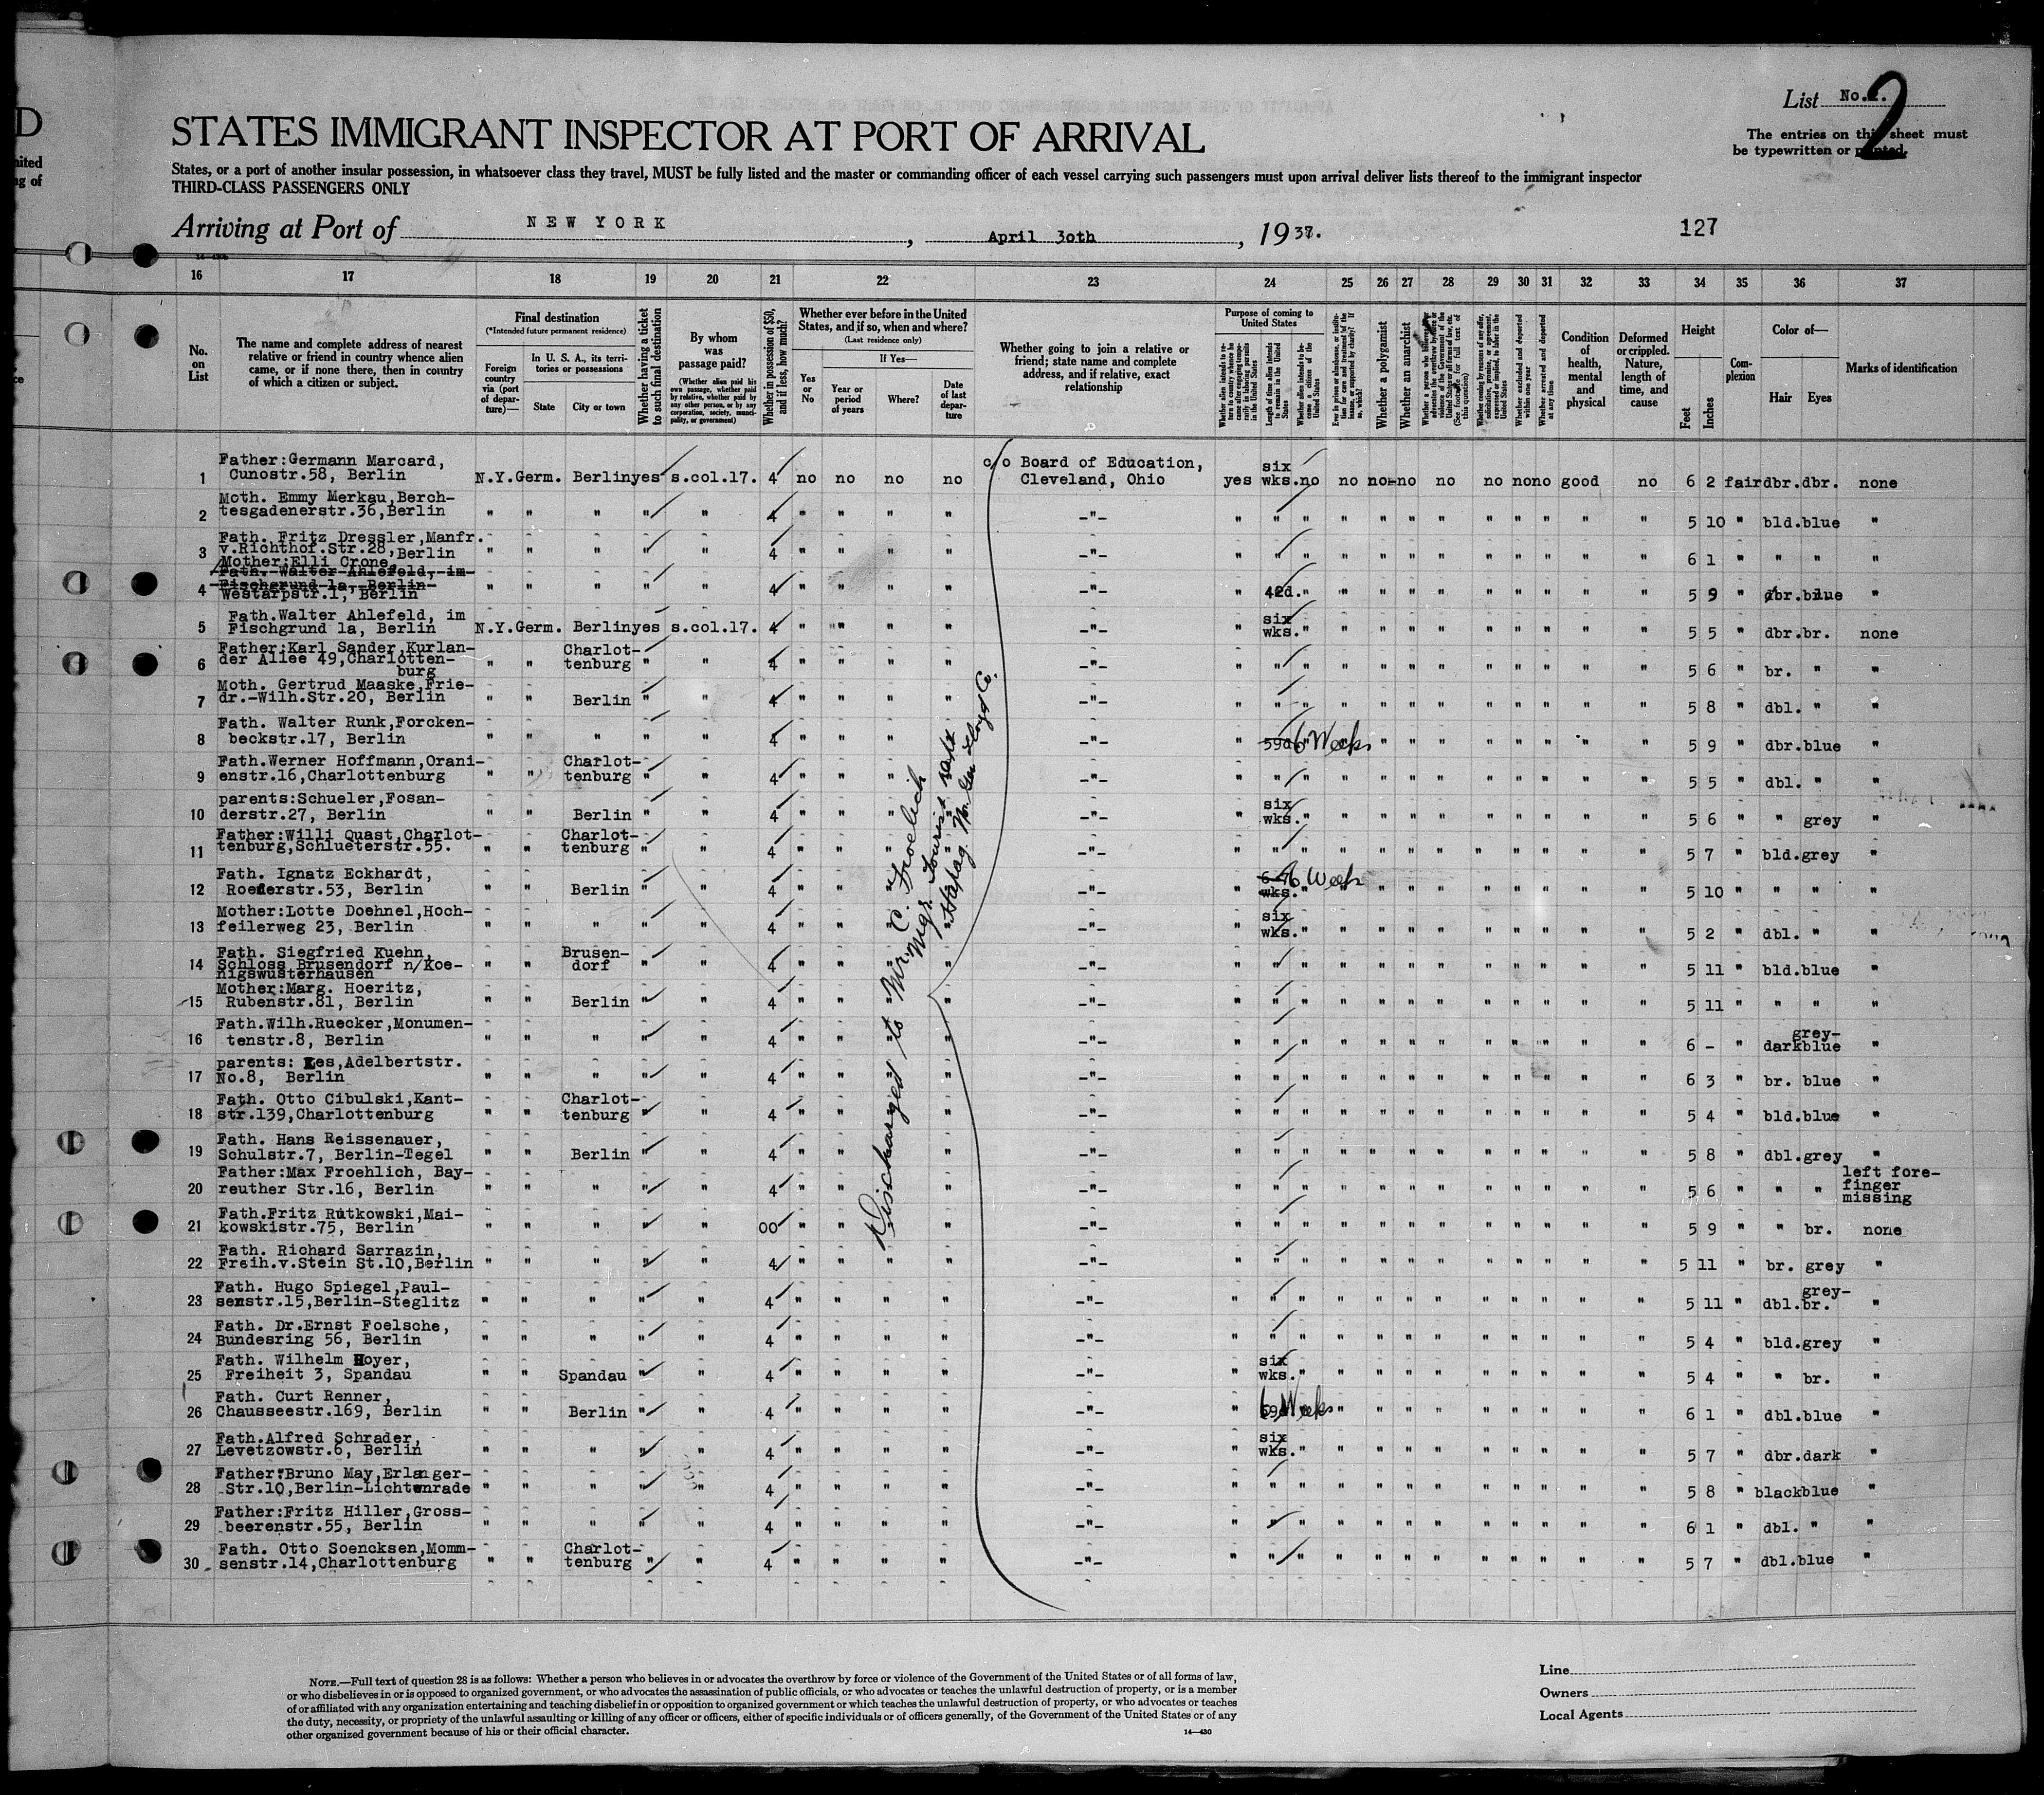 List No. 2.
2
The entries on this sheet must
be typewritten or printed.
STATES IMMIGRANT INSPECTOR AT PORT OF ARRIVAL
States, or a port of another insular possession, in whatsoever class they travel, MUST be fully listed and the master or commanding officer of each vessel carrying such passengers must upon arrival deliver lists thereof to the immigrant inspector
THIRD-CLASS PASSENGERS ONLY
Arriving at Port of NEW YORK, April 30th, 1937.
127
16 17 18 19 20 21 22 23 24 25 26 27 28 29 30 31 32 33 34 35 36 37
No. on List
The name and complete address of nearest relative or friend in country whence alien came, or if none there, then in country of which a citizen or subject.
Final destination
(*Intended future permanent residence)
Foreign country via (port of departure)—
In U. S. A., its territories or possessions
State
City or town
Whether having a ticket to such final destination
By whom was passage paid?
(Whether alien paid his own passage, whether paid by relative, whether paid by any other person, or by any corporation, society, municipality, or government)
Whether in possession of $50, and if less, how much?
Whether ever before in the United States, and if so, when and where?
(Last residence only)
Yes or No
If Yes—
Year or period of years
Where?
Date of last departure
Whether going to join a relative or friend; state name and complete address, and if relative, exact relationship
Purpose of coming to United States
Length of time alien intends to remain in the United States
Whether alien intends to become a citizen of the United States
Whether a polygamist
Whether an anarchist
Whether excluded and deported within one year
Whether arrested and deported at any time
Condition of health, mental and physical
Deformed or crippled. Nature, length of time, and cause
Height
Feet
Inches
Complexion
Color of—
Hair
Eyes
Marks of identification
1 Father:Germann Marcard, Cunostr.58, Berlin N.Y. Germ. Berlin yes s.col.17. 4 no no no no c/o Board of Education, Cleveland, Ohio yes six wks. no no no no no no no no good no 6 2 fair dbr. dbr. none
2 Moth. Emmy Merkau,Berchtesgadenerstr.36,Berlin " " " " " 4 " " " " -"- " " " " " " " " " " " " 5 10 " bld. blue "
3 Fath. Fritz Dressler,Manfr. v.Richthof.Str.28,Berlin " " " " " 4 " " " " -"- " " " " " " " " " " " " 6 1 " " " "
4 Mother:Elli Crone, Fath. Walter Ahlefeld, im Fischgrund 1a, Berlin Westarpstr.1, Berlin " " " " " 4 " " " " -"- " 42d. " " " " " " " " " " 5 9 " dbr. blue "
5 Fath.Walter Ahlefeld, im Fischgrund 1a, Berlin N.Y. Germ. Berlin yes s.col.17. 4 " " " " -"- " six wks. " " " " " " " " " " 5 5 " dbr. br. none
6 Father:Karl Sander,Kurlander Allee 49,Charlottenburg " " Charlottenburg " " 4 " " " " -"- " " " " " " " " " " " " 5 6 " br. " "
7 Moth. Gertrud Maaske,Friedr.-Wilh.Str.20, Berlin " " Berlin " " 4 " " " " -"- " " " " " " " " " " " " 5 8 " dbl. " "
8 Fath. Walter Runk,Forckenbeckstr.17, Berlin " " " " " 4 " " " " -"- " 59d 6 Weeks " " " " " " " " " 5 9 " dbr. blue "
9 Fath.Werner Hoffmann,Oranienstr.16,Charlottenburg " " Charlottenburg " " 4 " " " " -"- " " " " " " " " " " " " 5 5 " dbl. " "
10 parents:Schueler,Fosanderstr.27, Berlin " " Berlin " " 4 " " " " -"- " six wks. " " " " " " " " " " 5 6 " " grey "
11 Father:Willi Quast,Charlottenburg,Schlueterstr.55. " " Charlottenburg " " 4 " " " " -"- " " " " " " " " " " " " 5 7 " bld. grey "
12 Fath. Ignatz Eckhardt, Roederstr.53, Berlin " " Berlin " " 4 " " " " -"- " wks. 6 Weeks " " " " " " " " " " 5 10 " " " "
13 Mother:Lotte Doehnel,Hochfeilerweg 23, Berlin " " " " " 4 " " " " -"- " six wks. " " " " " " " " " " 5 2 " dbl. " "
14 Fath. Siegfried Kuehn, Schloss Brusendorf n/Koenigswusterhausen " " Brusendorf " " 4 " " " " -"- " " " " " " " " " " " " 5 11 " bld. blue "
15 Mother:Marg. Hoeritz, Rubenstr.81, Berlin " " Berlin " " 4 " " " " -"- " " " " " " " " " " " " 5 11 " " " "
16 Fath.Wilh.Ruecker,Monumentenstr.8, Berlin " " " " " 4 " " " " -"- " " " " " " " " " " " " 6 - " dark grey-blue "
17 parents: Les,Adelbertstr. No.8, Berlin " " " " " 4 " " " " -"- " " " " " " " " " " " " 6 3 " br. blue "
18 Fath. Otto Cibulski,Kantstr.139,Charlottenburg " " Charlottenburg " " 4 " " " " -"- " " " " " " " " " " " " 5 4 " bld. blue "
19 Fath. Hans Reissenauer, Schulstr.7, Berlin-Tegel " " Berlin " " 4 " " " " -"- " " " " " " " " " " " " 5 8 " dbl. grey "
20 Father:Max Froehlich, Bayreuther Str.16, Berlin " " " " " 4 " " " " -"- " " " " " " " " " " " " 5 6 " " " left forefinger missing
21 Fath.Fritz Rutkowski,Maikowskistr.75, Berlin " " " " " 00 " " " " -"- " " " " " " " " " " " " 5 9 " " br. none
22 Fath. Richard Sarrazin, Freih.v.Stein St.10,Berlin " " " " " 4 " " " " -"- " " " " " " " " " " " " 5 11 " br. grey "
23 Fath. Hugo Spiegel,Paulsenstr.15,Berlin-Steglitz " " " " " 4 " " " " -"- " " " " " " " " " " " " 5 11 " dbl. grey-br. "
24 Fath. Dr.Ernst Foelsche, Bundesring 56, Berlin " " " " " 4 " " " " -"- " " " " " " " " " " " " 5 4 " bld. grey "
25 Fath. Wilhelm Hoyer, Freiheit 3, Spandau " " Spandau " " 4 " " " " -"- " six wks. " " " " " " " " " " 5 4 " " br. "
26 Fath. Curt Renner, Chausseestr.169, Berlin " " Berlin " " 4 " " " " -"- " 59d 6 Weeks " " " " " " " " " 6 1 " dbl. blue "
27 Fath.Alfred Schrader, Levetzowstr.6, Berlin " " " " " 4 " " " " -"- " six wks. " " " " " " " " " " 5 7 " dbr. dark "
28 Father:Bruno May,Erlanger-Str.10,Berlin-Lichtenrade " " " " " 4 " " " " -"- " " " " " " " " " " " " 5 8 " black blue "
29 Father:Fritz Hiller,Grossbeerenstr.55, Berlin " " " " " 4 " " " " -"- " " " " " " " " " " " " 6 1 " dbl. " "
30 Fath. Otto Soencksen,Mommsenstr.14,Charlottenburg " " Charlottenburg " " 4 " " " " -"- " " " " " " " " " " " " 5 7 " dbl. blue "
Discharged to Mr. C. Froelich
Mgr. Tourist Dept
Hapag. No. Ger Lloyd Co.
NOTE.—Full text of question 28 is as follows: Whether a person who believes in or advocates the overthrow by force or violence of the Government of the United States or of all forms of law,
or who disbelieves in or is opposed to organized government, or who advocates the assassination of public officials, or who advocates or teaches the unlawful destruction of property, or is a member
of or affiliated with any organization entertaining and teaching disbelief in or opposition to organized government or which teaches the unlawful destruction of property, or who advocates or teaches
the duty, necessity, or propriety of the unlawful assaulting or killing of any officer or officers, either of specific individuals or of officers generally, of the Government of the United States or of any
other organized government because of his or their official character.
14—430
Line
Owners
Local Agents